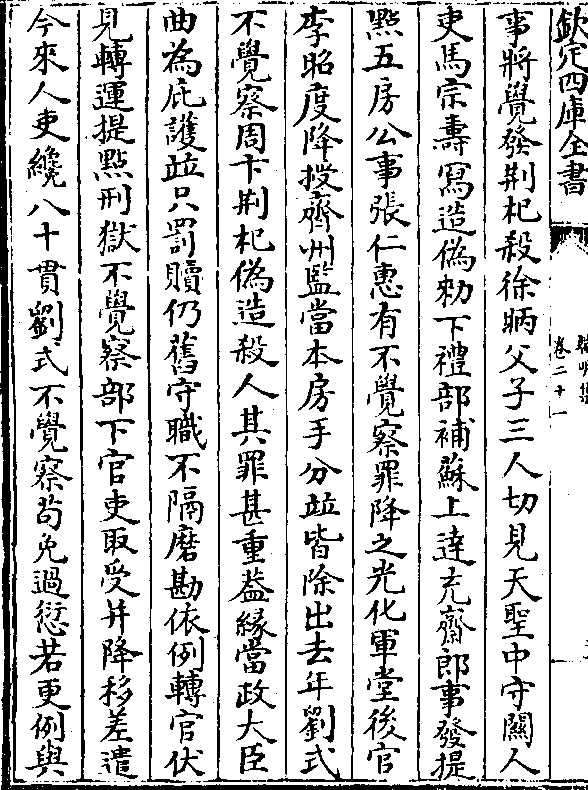 欽定四庫全書
卷二十一
事將覺發荆杞殺徐昞父子三人切見天聖中守闕人
吏馬宗夀寫造偽勑下禮部補蘇上達充齋郎事發提
㸃五房公事張仁惠有不覺察罪降之光化軍堂後官
李昭度降授齊州監當本房手分並皆除出去年劉式
不覺察周卞荆杞偽造殺人其罪甚重葢縁當政大臣
曲為庇護並只罰贖仍舊守職不隔磨勘依例轉官伏
見轉運提㸃刑獄不覺察部下官吏取受并降移差遣
今來人吏纔八十貫劉式不覺察苟免過愆若更例與